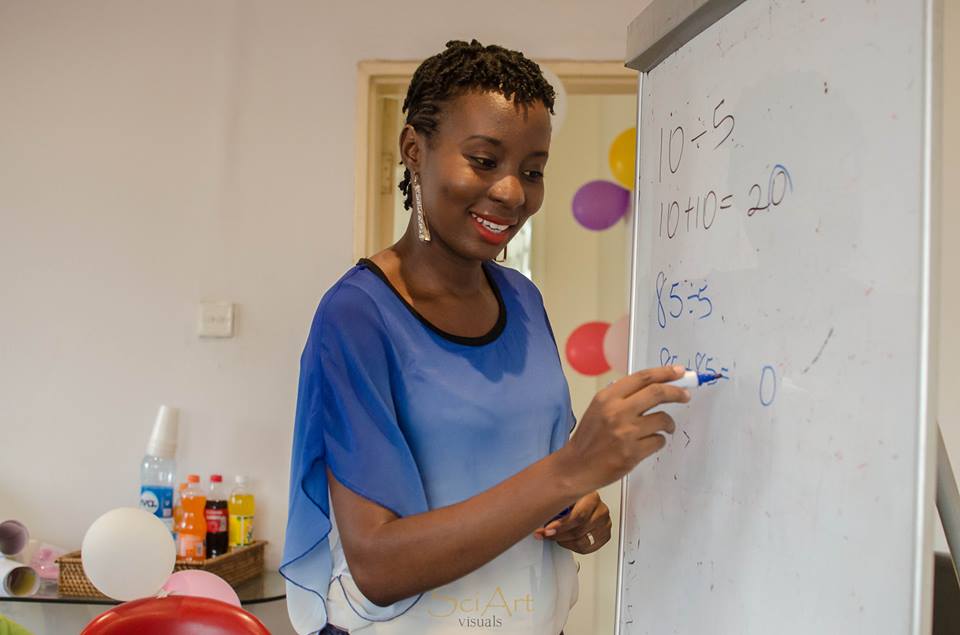 10÷5
10+10= 20
85÷5
85+85= 0
SciArt
visuals